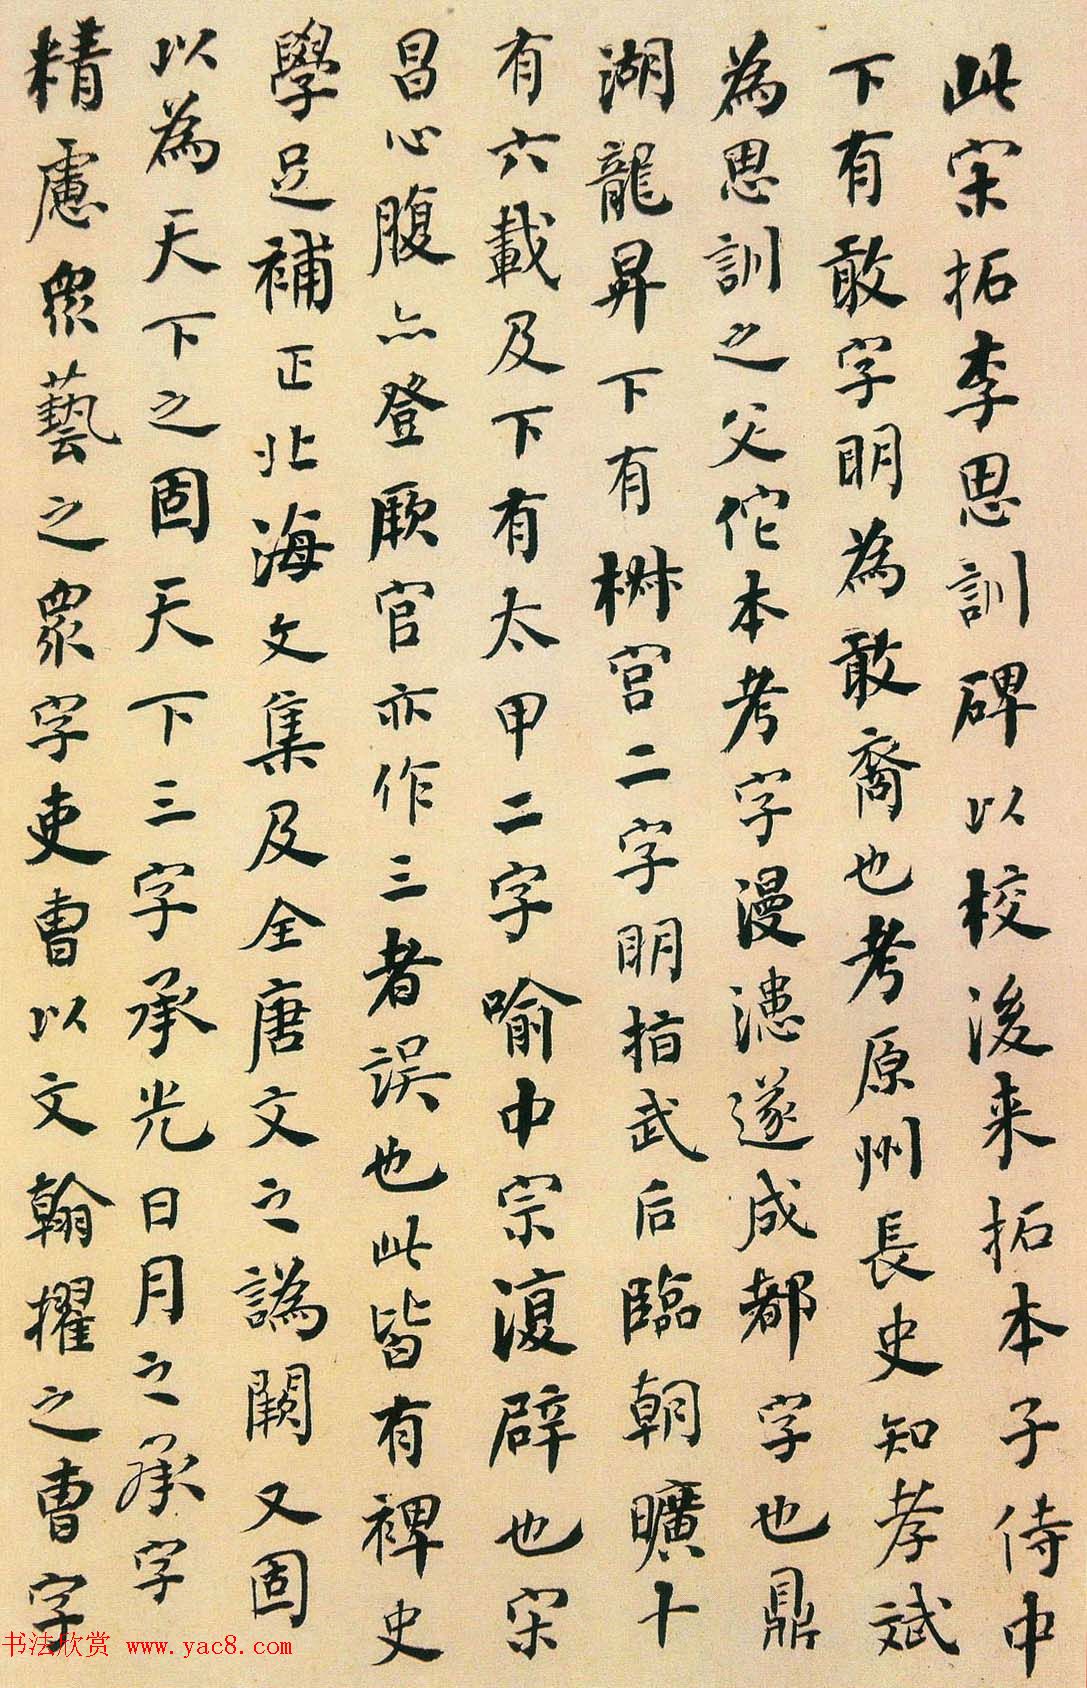 此宋拓李思訓碑以校後来拓本子侍中
下有敢字明為敢裔也考原州長史知孝斌
為思訓之父佗本考字漫漶遂成都字也鼎
湖龍昇下有椒宮二字明指武后臨朝曠十
有六載及下有太甲二字喻中宗復辟也宋
昌心腹亦登厥官亦作三者誤也此皆有裨史
學足補正北海文集及全唐文之譌闕又固
以為天下之固天下三字承光日月之承字
精慮眾藝之眾字吏曹以文翰擢之曹字
书法欣赏 www.yac8.com